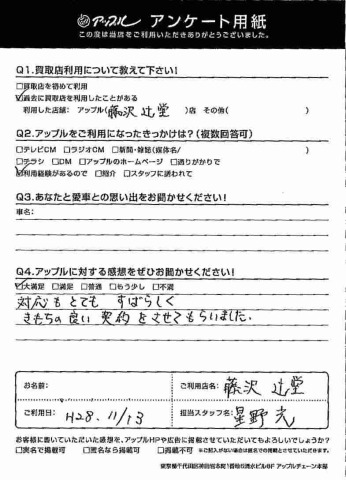 アップル アンケート用紙
この度は当店をご利用いただきありがとうございました。
Q1.買取店利用について教えて下さい!
□買取店を初めて利用
☑過去に買取店を利用したことがある
利用した店舗: アップル(藤沢辻堂)店 その他( )
Q2.アップルをご利用になったきっかけは?(複数回答可)
□テレビCM □ラジオCM □新聞・雑誌(媒体名/ )
□チラシ □DM □アップルのホームページ □通りがかりで
☑利用経験があるので □紹介 □スタッフに誘われて
Q3.あなたと愛車との思い出をお聞かせください!
車名:
Q4.アップルに対する感想をぜひお聞かせください!
☑大満足 □満足 □普通 □もう少し □不満
対応もとても すばらしく
きもちの良い 契約をさせてもらいました.
お名前:
ご利用店名: 藤沢 辻堂
ご利用日: H28.11/13
担当スタッフ名: 星野 光
お客様に書いていただいた感想を、アップルHPや広告に掲載させていただいてもよろしいでしょうか?
□実名で掲載可 □匿名なら掲載可 □掲載不可 ※ご記入がない場合は匿名での掲載とさせていただきます。
東京都千代田区神田岩本町1番地 岩清水ビル6F アップルチェーン本部